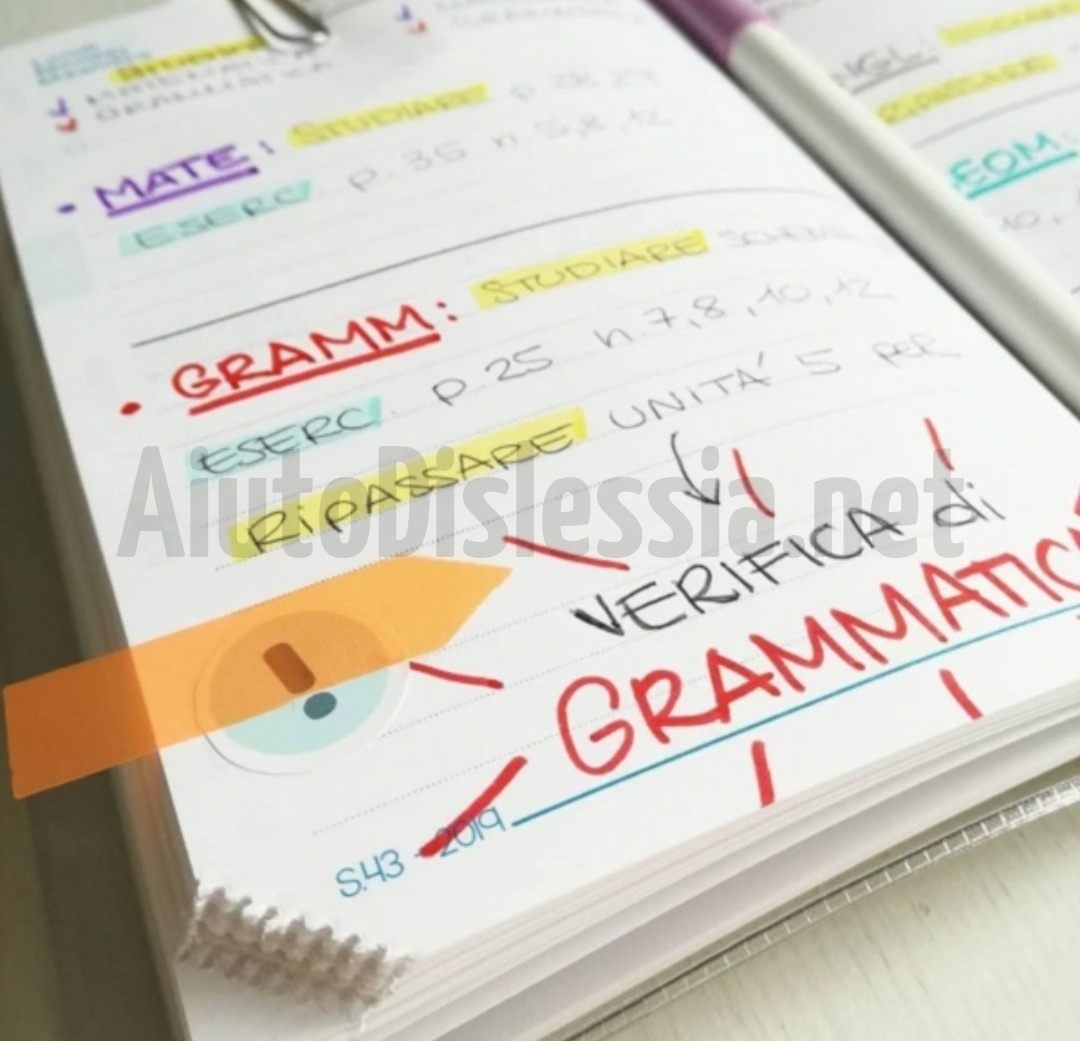 MATEMATICA
GRAMMATICA
• MATE: STUDIARE p. 28, 29
ESERC. p. 35 n. 5, 8, 12
• GRAMM: STUDIARE SCHEMA
ESERC. p. 25 n. 7, 8, 10, 12
RIPASSARE UNITÀ 5 PER
VERIFICA di
GRAMMATICA
S.43 - 2019
INGL:
RIPASSARE
GEOM:
AiutoDislessia.net